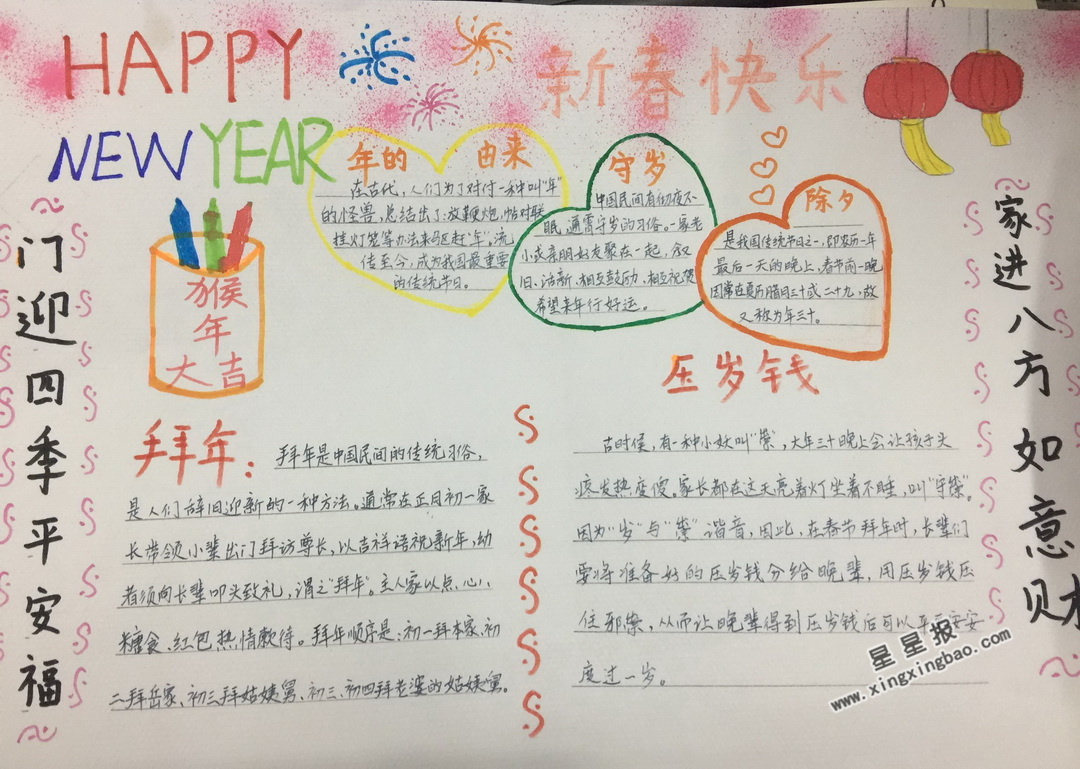 HAPPY
NEW YEAR
新春快乐
门迎四季平安福
家进八方如意财
猴
年
大吉
年的 由来
在古代,人们为了对付一种叫"年"
的怪兽,总结出了:放鞭炮,帖对联
挂灯笼等办法来驱赶"年"。流
传至今,成为我国最重要
的传统节日。
守岁
中国民间有彻夜不
眠,通宵守岁的习俗。一家老
小或亲朋好友聚在一起,叙
旧、话新、相互鼓励、相互祝贺
希望来年行好运。
除夕
是我国传统节日之一,即农历一年
最后一天的晚上,春节前一晚
因常在夏历腊月三十或二十九,故
又称为年三十。
拜年:
拜年是中国民间的传统习俗,
是人们辞旧迎新的一种方法。通常在正月初一家
长带领小辈出门拜访尊长,以吉祥语祝新年,幼
者须向长辈叩头致礼,谓之"拜年"。主人家以点、心、
糖食、红包热情款待。拜年顺序是:初一拜本家、初
二拜岳家、初三拜姑姨舅、初三、初四拜老婆的姑姨舅。
压岁钱
古时侯,有一种小妖叫"祟",大年三十晚上会让孩子头
疼发热变傻。家长都在这天亮着灯坐着不睡,叫"守祟"。
因为"岁"与"祟"谐音,因此,在春节拜年时,长辈们
要将准备好的压岁钱分给晚辈,用压岁钱压
住邪祟,从而让晚辈得到压岁钱后可以平平安安
度过一岁。
星星报
www.xingxingbao.com